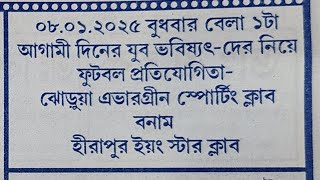 ০৮.০১.২০২৫ বুধবার বেলা ১টা
আগামী দিনের যুব ভবিষ্যৎ-দের নিয়ে
ফুটবল প্রতিযোগিতা-
ঝোড়ুয়া এভারগ্রীন স্পোর্টিং ক্লাব
বনাম
হীরাপুর ইয়ং স্টার ক্লাব